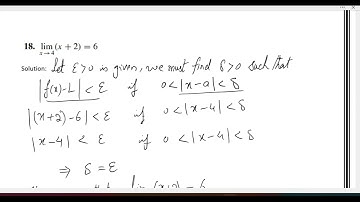 18. lim (x + 2) = 6
x→4
Solution: Let ε>0 is given, we must find δ>0 such that
|f(x)-L| < ε if 0<|x-a|<δ
|(x+2)-6| < ε if 0<|x-4|<δ
|x-4| < ε if 0<|x-4|<δ
⇒ δ = ε
lim (x+2) = 6